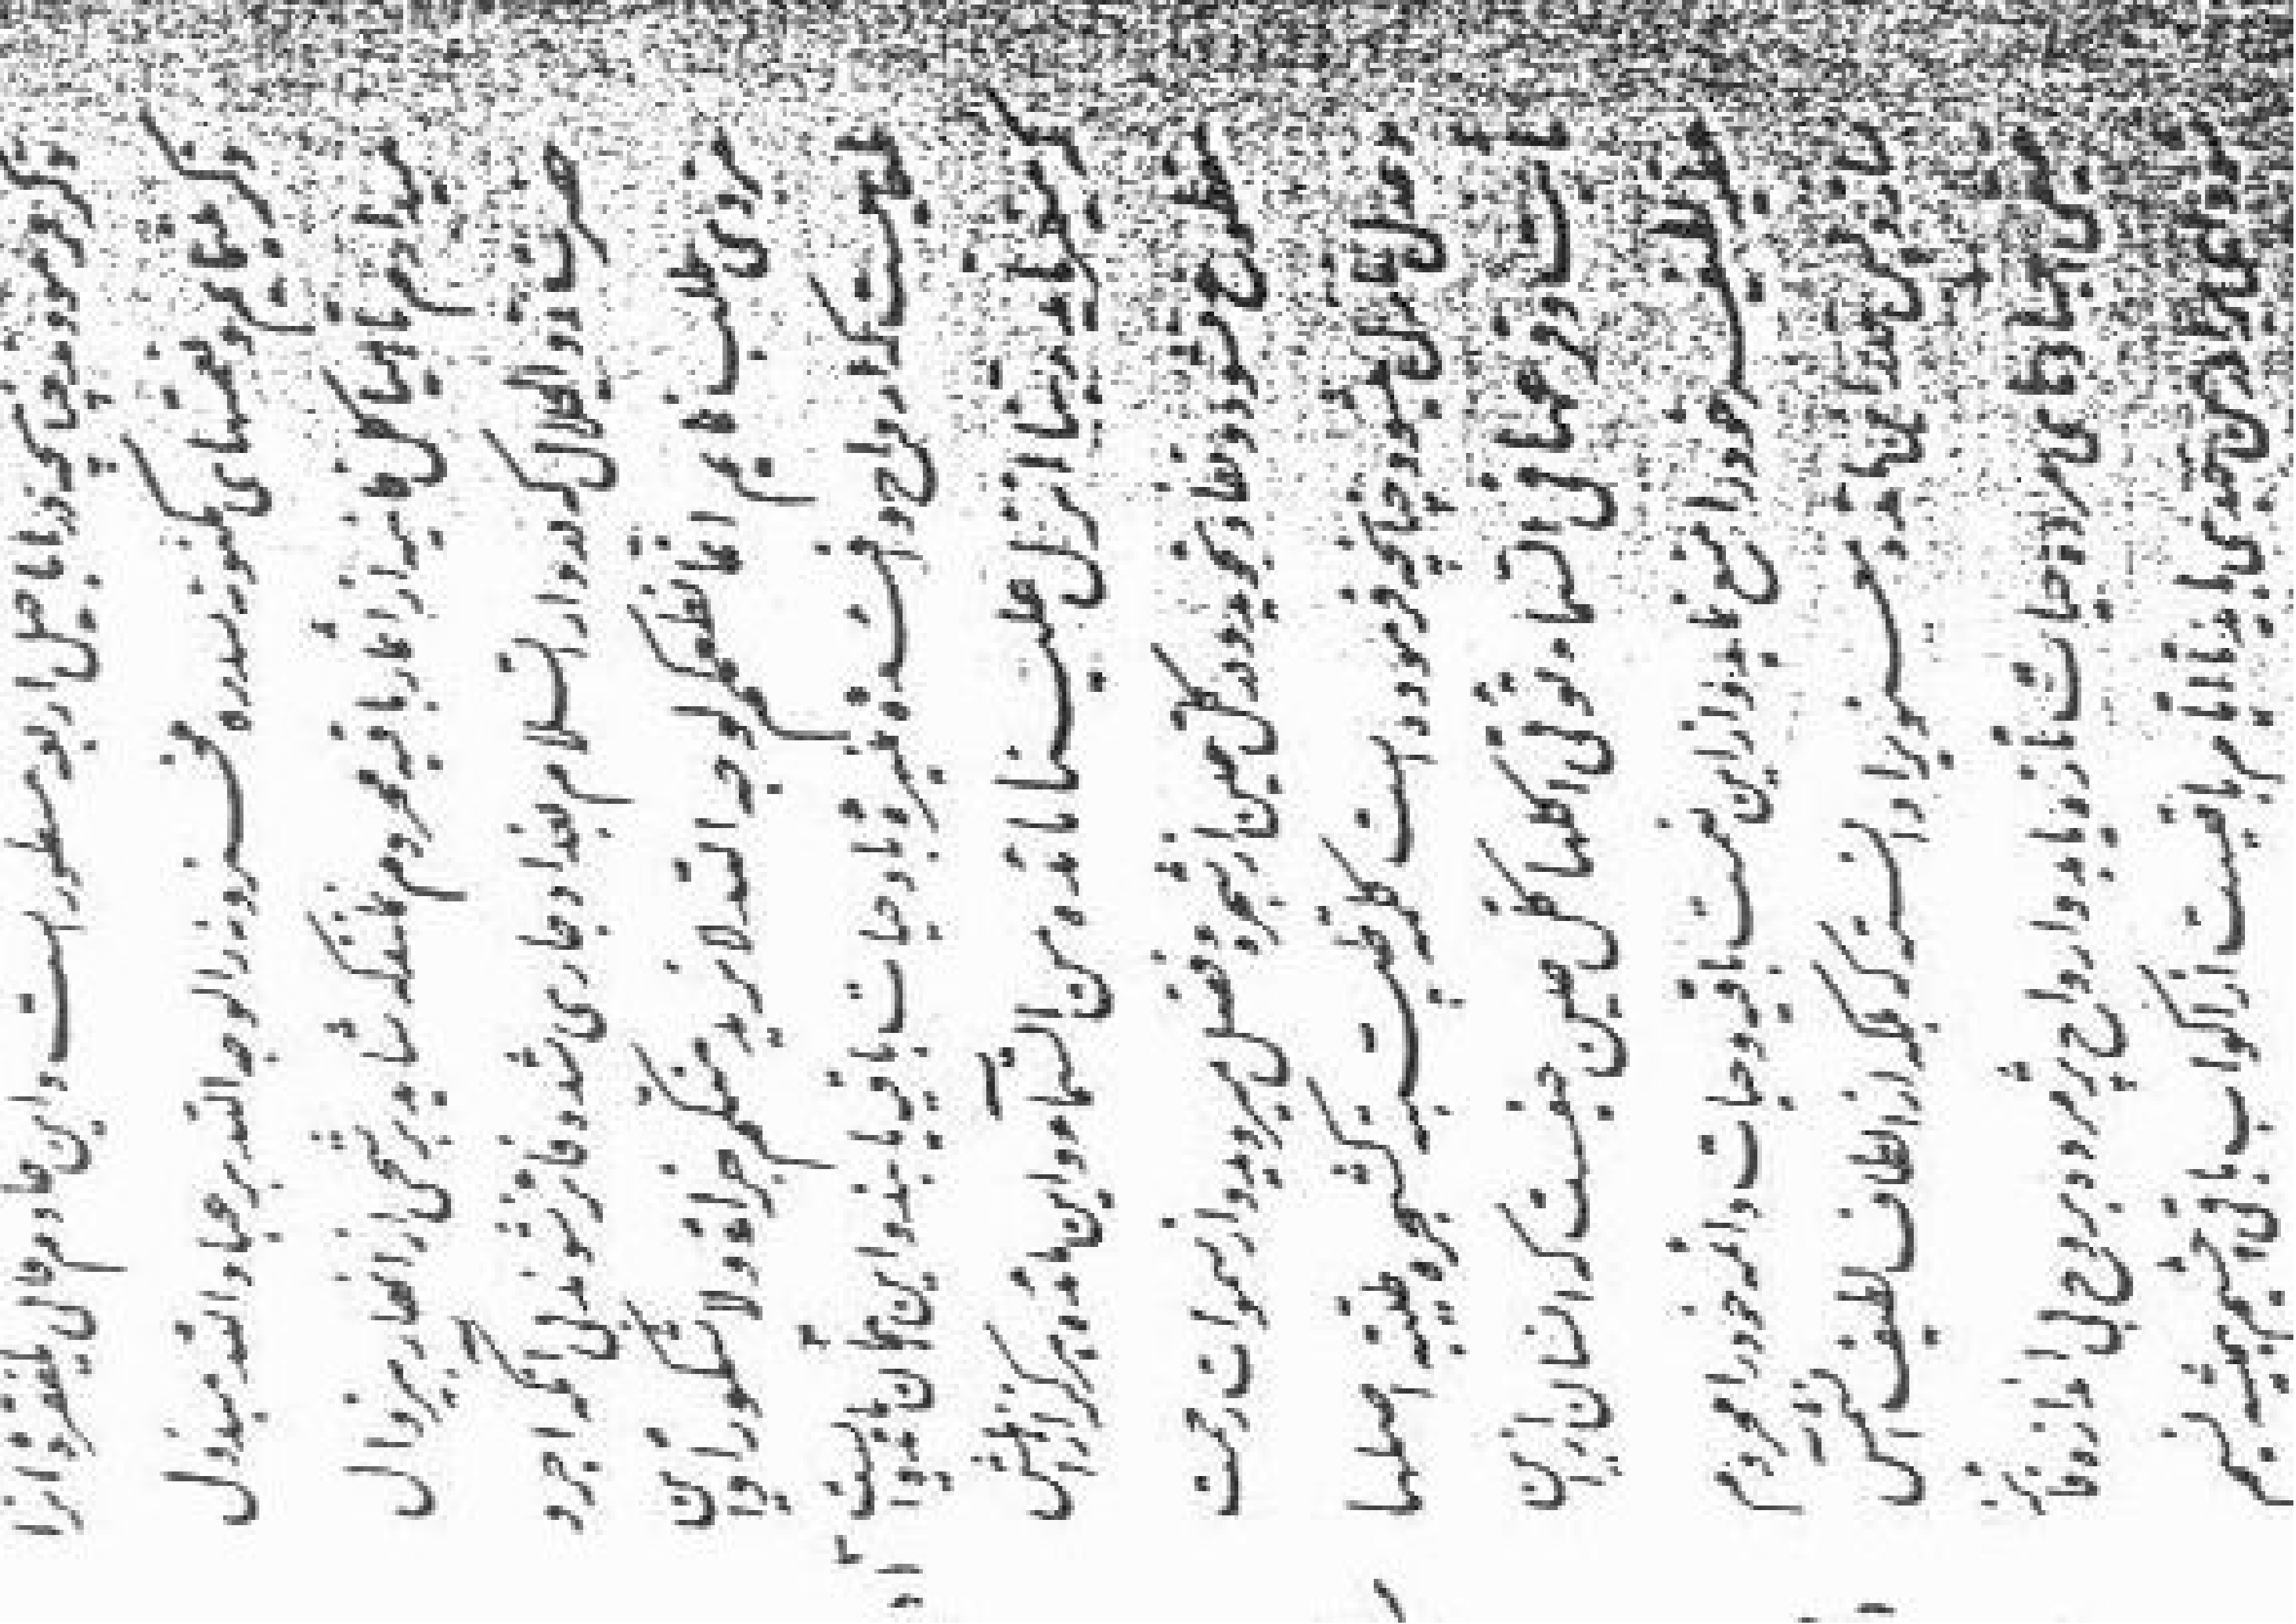 ذکر فرموده چنانچه در اناجیل اربعه مسطور است و این خادم فانی
ذکر می نمایم و نعمتهای مکنونه سدره مخزونه را لوجه الله بر عباد الله مبذول
میدارم تا هیاکل فانیه از اثمار باقیه محروم نمانند که شاید برشحی از انهار بی زوال
حضرت ذو الجلال که در دار السلام بغداد جاری شده فائز شوند بی آنکه اجر و
مزدی طلب نمایم انما نطعمکم لوجه الله لا نرید منکم جزاء و لا شکورا و این
طعامیست که ارواح و افئده منیره باو حیات باقیه یابند و این همان مائده ایست
که میفرماید ربنا انزل علینا مائدة من السماء و این مائده هرگز از اهلش
مقطوع نشود و نفاد نجوید در کل حین از شجره فضل میروید و از سموات رحمت
و عدل نازل میشود چنانچه فرموده است کلمة طیبة کشجرة طیبة اصلها
ثابت و فرعها فی السماء و تؤتی اکلها کل حین حیفست که انسان از این
عطیه لطیفه خود را منع نماید و از این نعمت باقیه و حیات دائمه خود را محروم
نماید پس قدر این مائده معنوی را دانسته که بلکه از الطاف لطیف آن شمس
حقیقی اجساد های مرده حیات تازه یابد و ارواح پژمرده بروح بی اندازه فائز
ای برادر من جهدی باید تا ایام باقیست از اکواب باقی چشیم همیشه نسیم